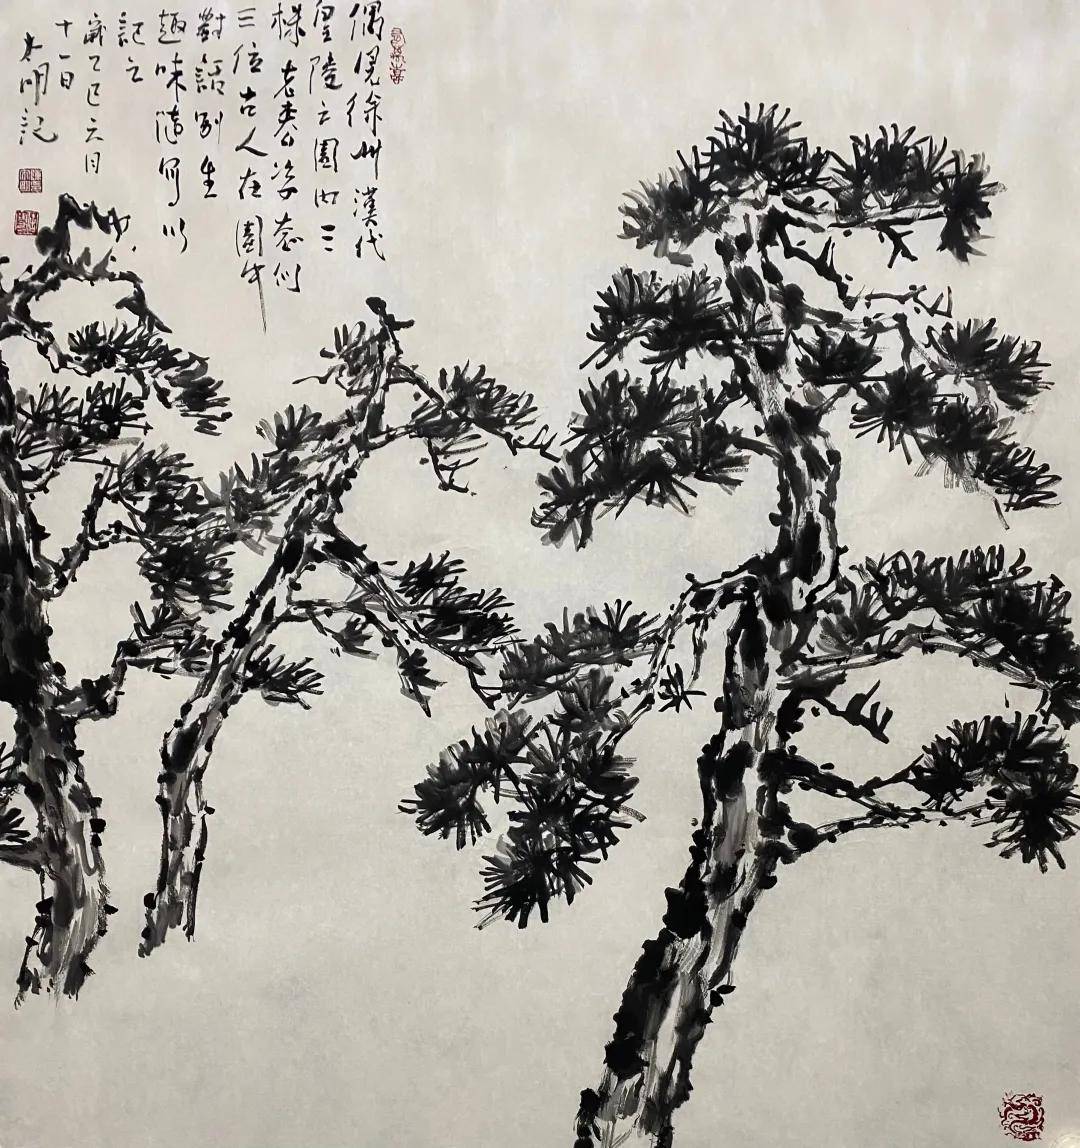 偶見徐州漢代
皇陵之園內三
棵老松姿态似
三位古人在園中
對話別生
趣味隨寫以
記之
歲乙巳六月
十一日
明記